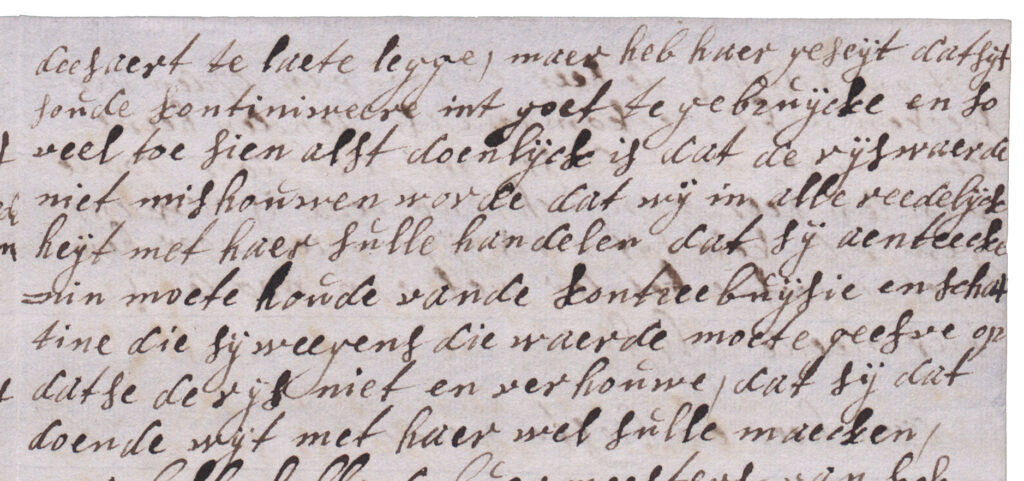 deesaert te laete legge, maer heb haer geseyt datsyt
soude kontiniweere int goet te gebruycke en so
veel toe sien alst doenlyck is dat de ryswaerde
niet mishouwen worde dat wy in alle reedelyck
heyt met haer sulle handelen dat sy aenteecke
=nin moete houde vande kontreebuysie en schat
tine die sy weegens die waerde moete geefve op
datse de rys niet en verhouwe, dat sy dat
doende wyt met haer wel sulle maecken,